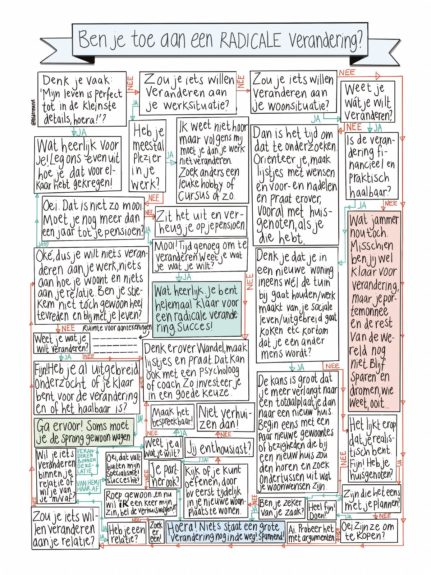 Ben je toe aan een RADICALE verandering?
Denk je vaak:
'Mijn leven is perfect
tot in de kleinste
details, hoera!'?
Zou je iets willen
veranderen aan
je werksituatie?
Zou je iets willen
veranderen aan
je woonsituatie?
NEE
Weet je
wat je wilt
veranderen?
JA
Wat heerlijk voor
je! Leg ons even uit
hoe je dat voor el-
kaar hebt gekregen!
Heb je
meestal
plezier
in je
werk?
Ik weet niet hoor
maar volgens mij
moet je dan je werk
niet veranderen.
Zoek anders een
leuke hobby of
cursus o.z.o.
Dan is het tijd om
dat te onderzoeken.
Orienteer je, maak
lijstjes met wensen
en voor- en nadelen
en praat erover,
vooral met huis-
genoten, als je
die hebt.
JA
Is de veran-
dering fi-
nancieel en
praktisch
haalbaar?
Oei. Dat is niet zo mooi.
Moet je nog meer dan
een jaar tot je pensioen?
Zit het uit en ver-
heug je op je pensioen
Wat jammer
nou toch.
Misschien
ben jij wel
klaar voor
verandering,
maar je por-
temonnee
en de rest
van de we-
reld nog
niet. Blijf
sparen en
dromen, wie
weet ooit...
Oké, dus je wilt niets veran-
deren aan je werk, niets
aan hoe je woont en niets
aan je relatie. Ben je stie-
kem niet toch gewoon heel
tevreden en blij met je leven?
Mooi! Tijd genoeg om te
veranderen. Weet je wat
je wat je wilt?
JA
Wat heerlijk, je bent
helemaal klaar voor
een radicale verande-
ring. Succes!
Denk je dat je in
een nieuwe woning
ineens wél de tuin
bij gaat houden/werk
maakt van je sociale
leven/uitgebreid gaat
koken etc kortom
dat je een ander
mens wordt?
NEE
Weet je wat je
wilt veranderen?
Ruimte voor aantekeningen
JA
Fijn! Heb je al uitgebreid
onderzocht of je klaar
bent voor de verandering
en of het haalbaar is?
Denk erover. Wandel, maak
lijstjes en praat. Dat kan
ook met een psycholoog
of coach. Zo investeer je
in een goede keuze.
De kans is groot dat
je meer verlangt naar
een totaal plaatje dan
naar een nieuw huis.
Begin eens met een
paar nieuwe gewoontes
of bezigheden die bij
een nieuw huis zou-
den horen en zoek
ondertussen uit wat
je woonwensen zijn.
Ga ervoor! Soms moet
je de sprong gewoon wagen
Maak het
bespreekbaar!
Niet verhui-
zen dan!
Het lijkt erop
dat je realis-
tisch bent.
Fijn! Heb je
huisgenoten?
Wil je iets
veranderen
binnen je
relatie, of
wil je van
je m/v af?
Weet je al
wat je wilt?
Jij enthousiast?
Je part-
ner ook?
Kijk of je kunt
oefenen, door
bv eerst tijdelijk
in je nieuwe woon-
plaats te wonen.
Ben je zeker
van je zaak?
Heel fijn!
Doen!
Zijn die het eens
met je plannen?
Zou je iets wil-
len veranderen
aan je relatie?
Heb je een
relatie?
Zoek
er een!
Hoera! Niets staat een grote
verandering nog in de weg! Spannend!
Ai. Probeer het
met argumenten
Oei. Zijn ze om
te kopen?